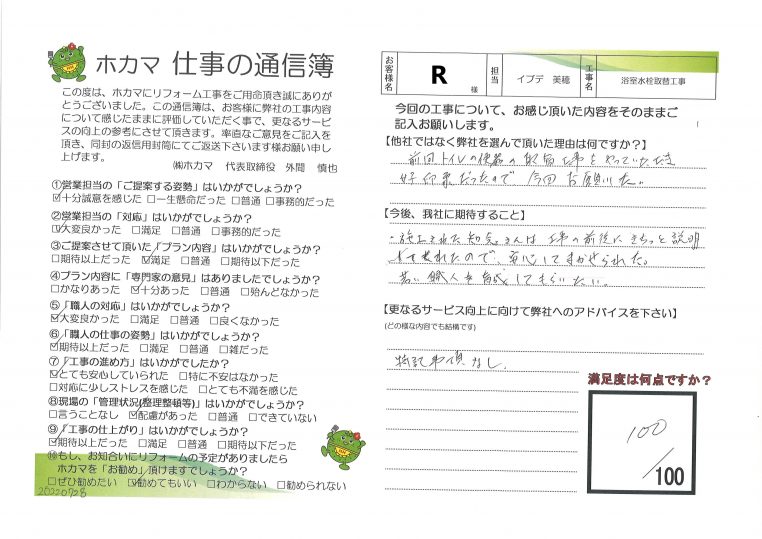 ホカマ 仕事の通信簿
この度は、ホカマにリフォーム工事をご用命頂き誠にありが
とうございました。この通信簿は、お客様に弊社の工事内容
について感じたままに評価していただく事で、更なるサービ
スの向上の参考にさせて頂きます。率直なご意見をご記入を
頂き、同封の返信用封筒にてご返送下さいます様お願い申し
上げます。
㈱ホカマ 代表取締役 外間 慎也
①営業担当の「ご提案する姿勢」はいかがでしょうか?
☑十分誠意を感じた □一生懸命だった □普通 □事務的だった
②営業担当の「対応」はいかがでしょうか?
☑大変良かった □満足 □普通 □事務的だった
③ご提案させて頂いた「プラン内容」はいかがでしょうか?
□期待以上だった ☑満足 □普通 □期待以下だった
④プラン内容に「専門家の意見」はありましたでしょうか?
□かなりあった ☑十分あった □普通 □殆んどなかった
⑤「職人の対応」はいかがでしょうか?
☑大変良かった □満足 □普通 □良くなかった
⑥「職人の仕事の姿勢」はいかがでしょうか?
☑期待以上だった □満足 □普通 □雑だった
⑦「工事の進め方」はいかがでしたか?
☑とても安心していられた □特に不安はなかった
□対応に少しストレスを感じた □とても不満を感じた
⑧現場の「管理状況(整理整頓等)」はいかがでしょうか?
□言うことなし ☑配慮があった □普通 □できていない
⑨「工事の仕上がり」はいかがでしょうか?
☑期待以上だった □満足 □普通 □期待以下だった
⑩もし、お知合いにリフォームの予定がありましたら
ホカマを「お勧め」頂けますでしょうか?
□ぜひ勧めたい ☑勧めてもいい □わからない □勧められない
20220728
お客様名 R 様 担当 イブデ 美穂 工事名 浴室水栓取替工事
今回の工事について、お感じ頂いた内容をそのままご
記入お願いします。
【他社ではなく弊社を選んで頂いた理由は何ですか?】
前回トイレの便器の取替工事をやっていただき
好印象だったので今回お願いした。
【今後、我社に期待すること】
施工された知念さんは工事の前後にきちっと説明
されたので、安心してまかせられた。
若い職人を育成してもらいたい。
【更なるサービス向上に向けて弊社へのアドバイスを下さい】
(どの様な内容でも結構です)
特記事項なし。
満足度は何点ですか?
100
/100